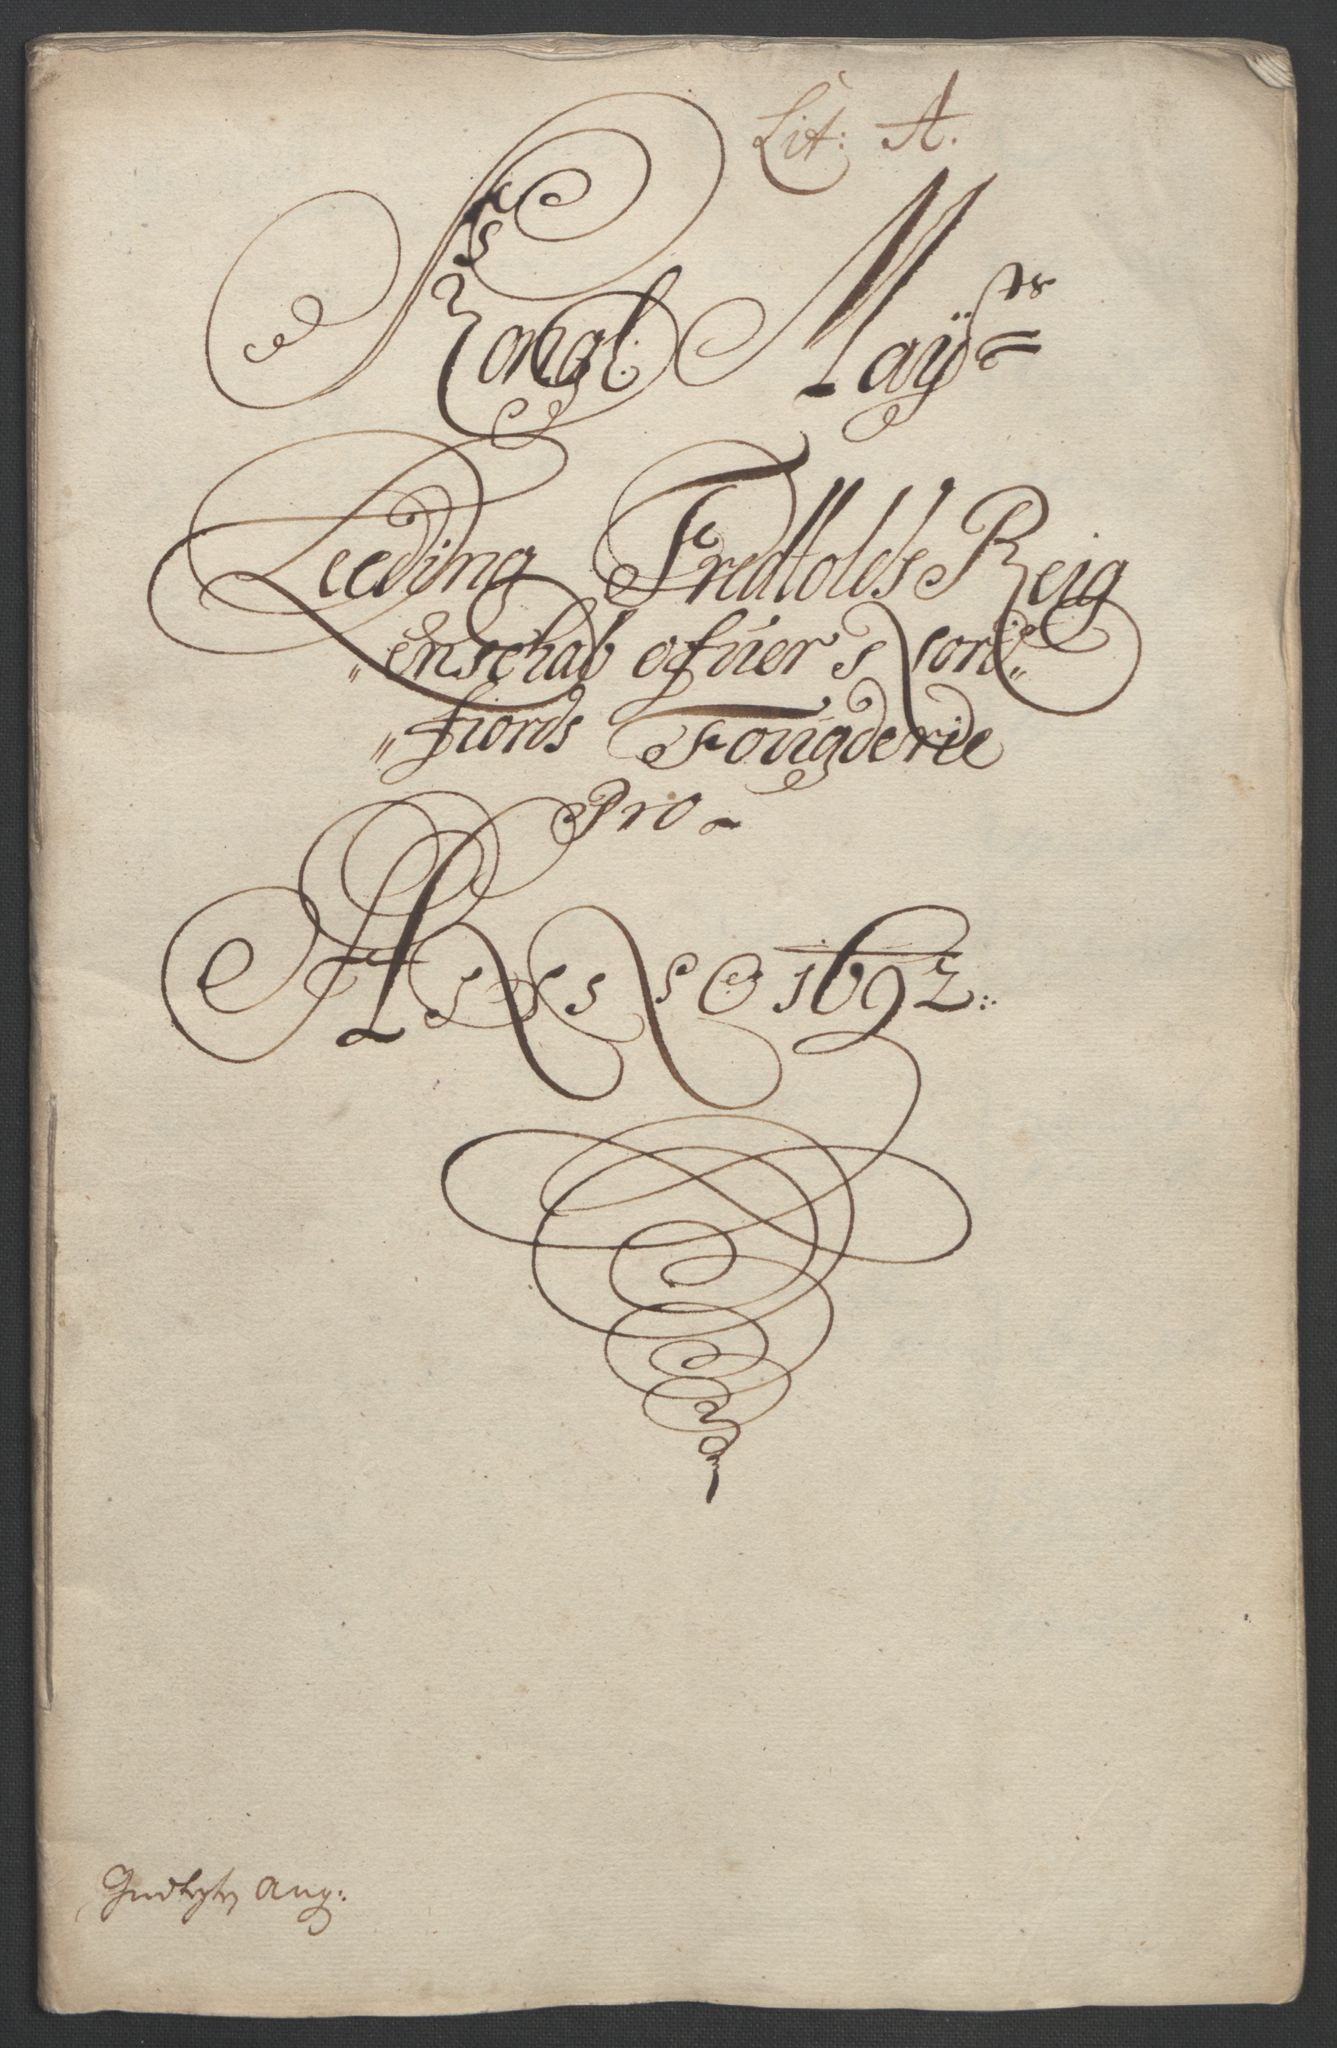 Lit: A.
Kongl: Maÿ=ts
Leeding Fredtolds Reig
"enschab ofuer Nord"
"fiords Fougderie
Pro
Anno 1692:
Indtegtz ang: